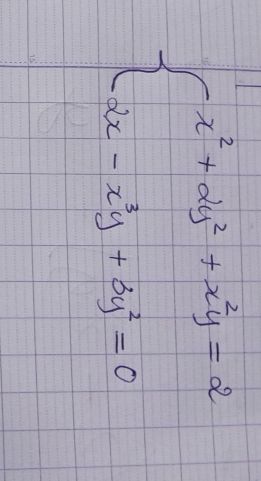 x² + 2y² + x²y = 2
2x - x³y + 3y² = 0